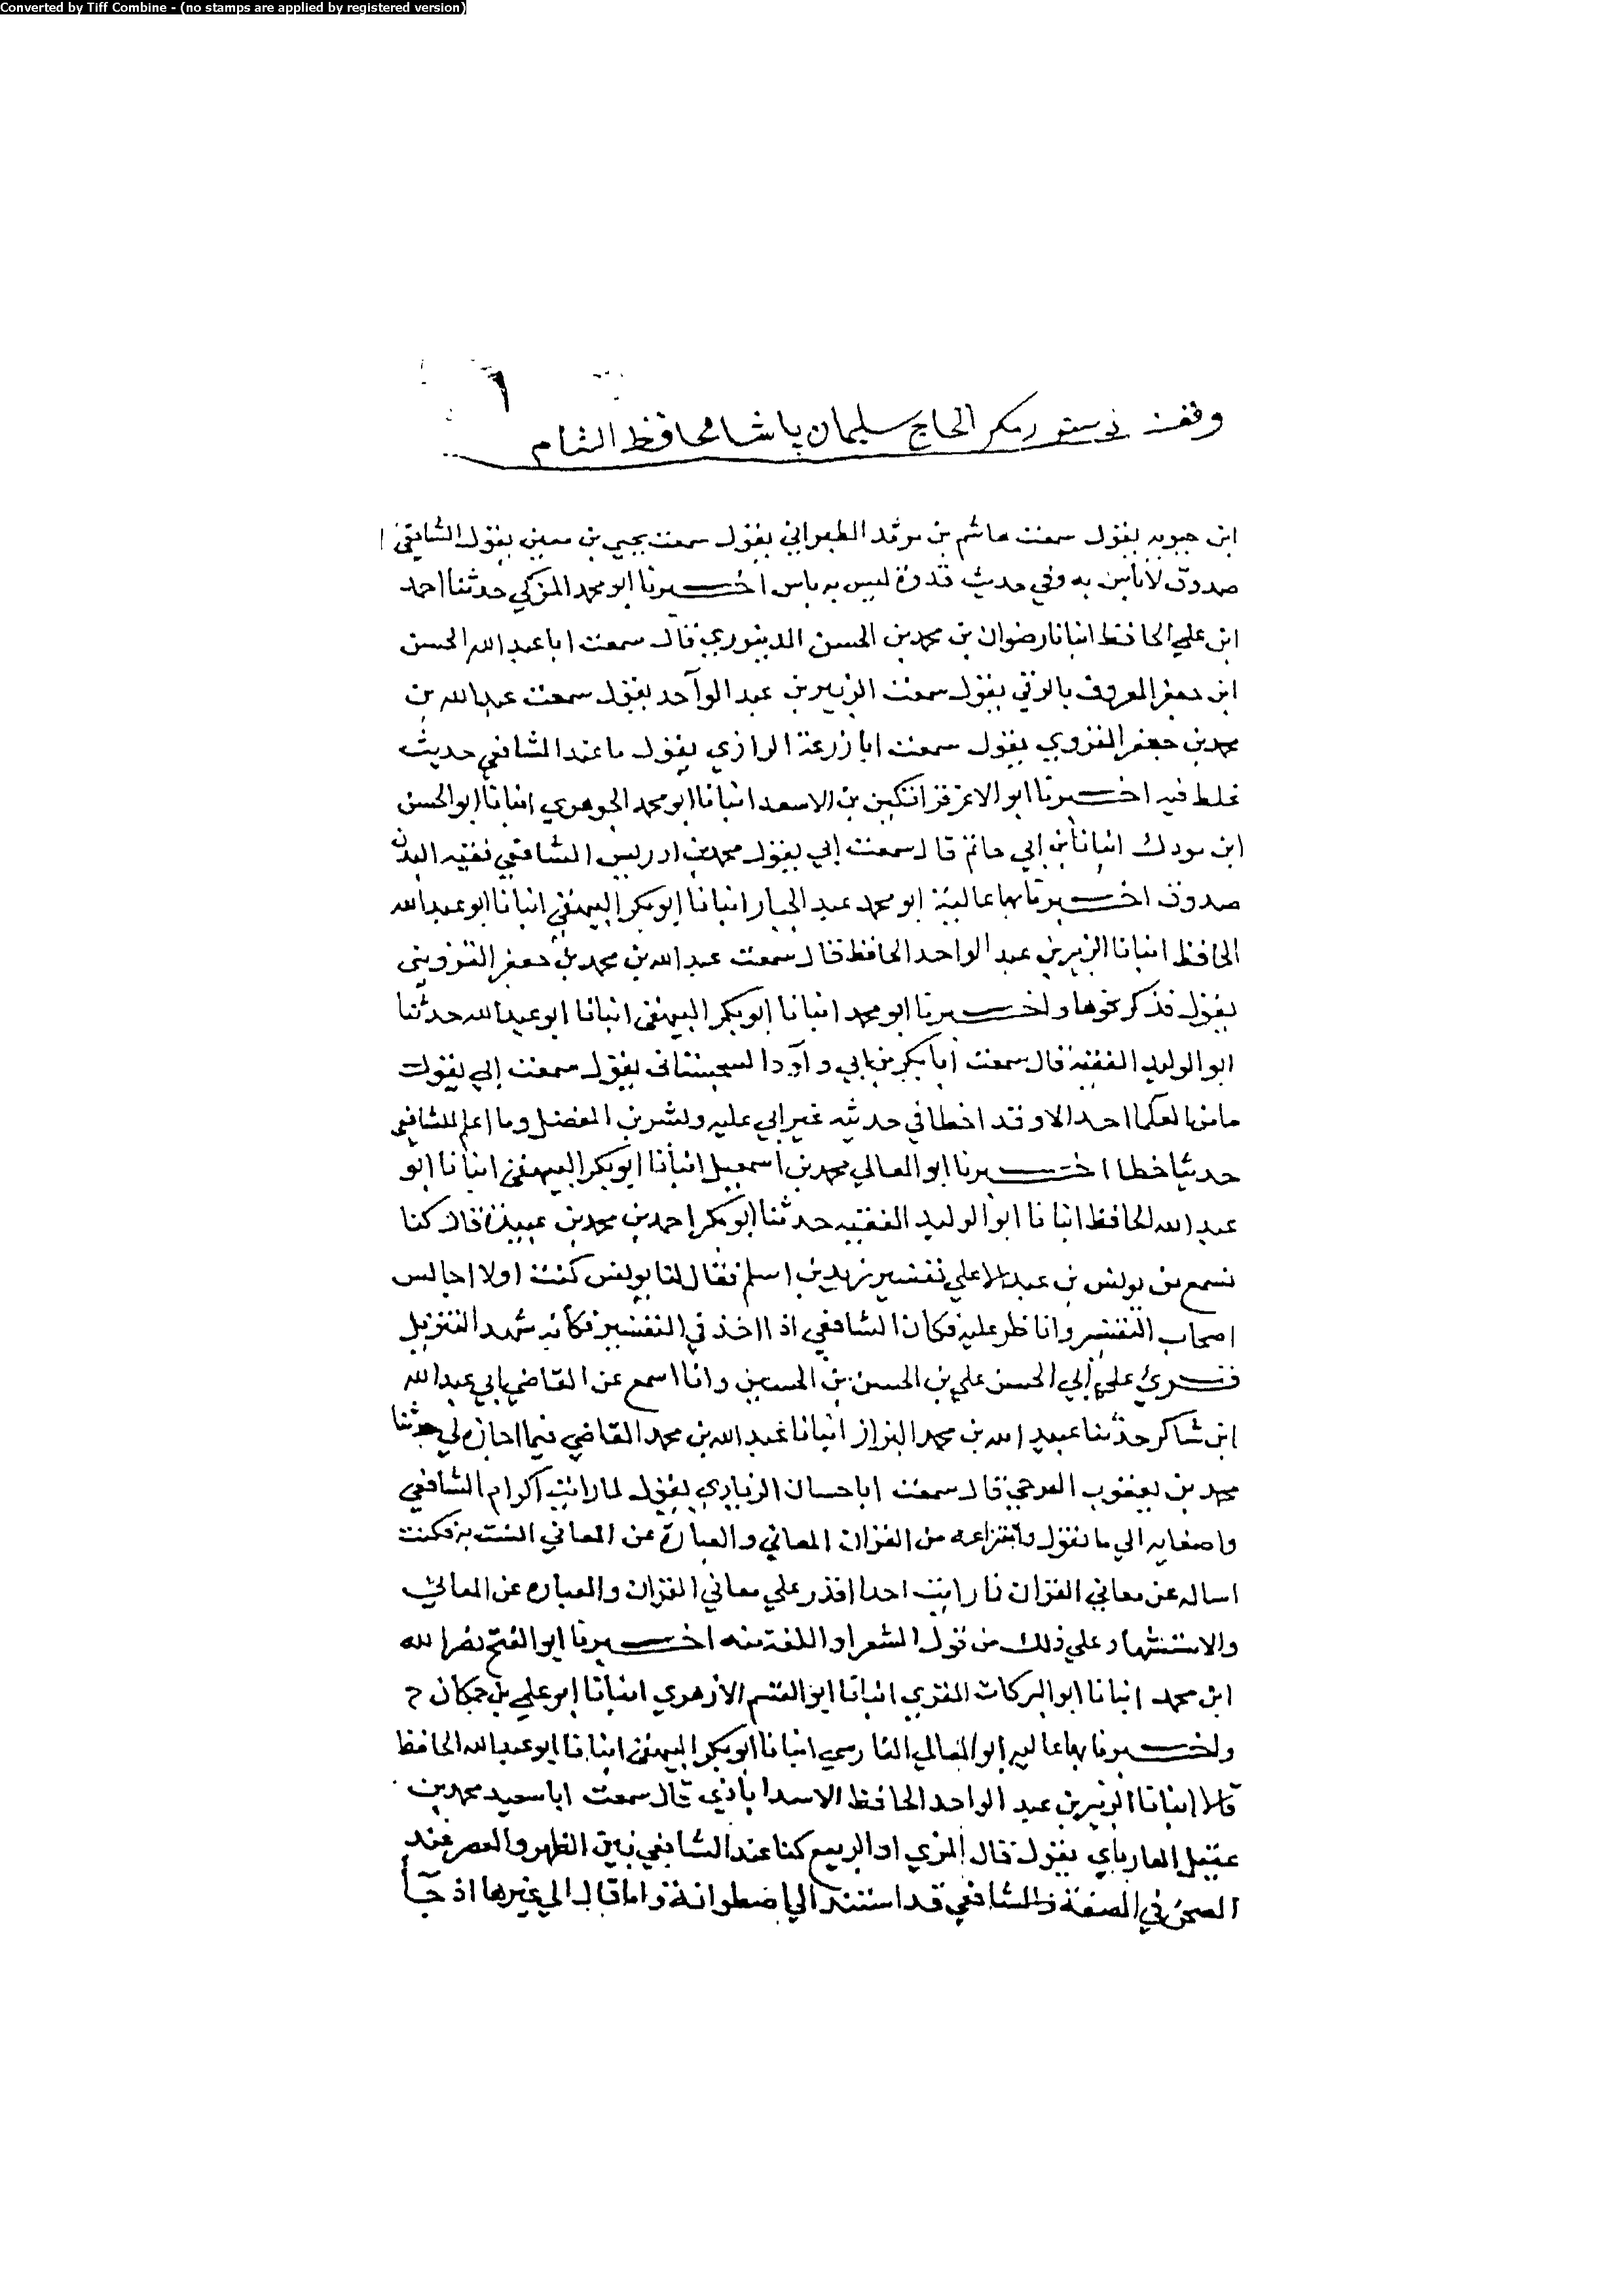 Converted by Tiff Combine - (no stamps are applied by registered version)
وقف دستور مكرم الحاج سليمان پاشا محافظ الشام
ابن حبويه يقول سمعت هاشم بن مرثد الطبراني يقول سمعت يحيي بن معين يقول الشافعي
صدوق لا باس به وفي حديث قدوة ليس به باس اخبرنا ابو محمد المزكي حدثنا احمد
ابن علي الحافظ انبانا رضوان بن محمد بن الحسن الدينوري قال سمعت ابا عبد الله الحسن
ابن جعفر المعروف بالوقي يقول سمعت الزبير بن عبد الواحد يقول سمعت عبد الله بن
محمد بن جعفر القزويي يقول سمعت ابا زرعة الرازي يقول ما عند الشافعي حديث
غلط فيه اخبرنا ابو الاعز قراتكين بن الاسعد انبانا ابو محمد الجوهري انبانا ابو الحسن
ابن مردك انبانا ابن ابي حاتم قال سمعت ابي يقول محمد بن ادريس الشافعي فقيه البدن
صدوق اخبرنا بها عالية ابو محمد عبد الجبار انبانا ابو بكر البيهقي انبانا ابو عبد الله
الحافظ انبانا الزبير بن عبد الواحد الحافظ قال سمعت عبد الله بن محمد بن جعفر القزويني
يقول فذكر نحوها واخبرنا ابو محمد انبانا ابو بكر البيهقي انبانا ابو عبد الله حدثنا
ابو الوليد الفقيه قال سمعت ابا بكر بن ابي داود السجستاني يقول سمعت ابي يقول
ما من العلما احد الا وقد اخطا في حديثه غير ابن عليه وبشر بن المفضل وما اعلم للشافعي
حديثا خطا اخبرنا ابو المعالي محمد بن اسمعيل انبانا ابو بكر البيهقي انبانا ابو
عبد الله الحافظ انبانا ابو الوليد الفقيه حدثنا ابو بكر احمد بن محمد بن عبيدة قال كنا
نسمع من يونس بن عبد الاعلي تفسير زيد بن اسلم فقال لنا يونس كنت اولا اجالس
اصحاب التفسير واناظر عليه فكان الشافعي اذا اخذ في التفسير فكانه شهد التنزيل
قرئ علي ابي الحسن علي بن الحسن بن الحسين وانا اسمع عن القاضي ابي عبد الله
ابن شاكر حدثنا عبيد الله بن محمد البزاز انبانا عبد الله بن محمد القاضي فيما اجازه لي حدثنا
محمد بن يعقوب الفرجي قال سمعت ابا حسان الزيادي يقول لما رايت اكرام الشافعي
واصغايه الي ما نقول وانتزاعه من القران المعاني والعبارة عن المعاني انست به فكنت
اساله عن معاني القران فما رايت احدا اقدر علي معاني القران والعباره عن المعاني
والاستشهاد علي ذلك من قول الشعر او اللغة منه اخبرنا ابو الفتح نصر الله
ابن محمد انبانا ابو البركات المقري انبانا ابو القسم الازهري انبانا ابو علي بن حمكان ح
واخبرنا بها عاليه ابو المعالي الفارسي انبانا ابو بكر البيهقي انبانا ابو عبد الله الحافظ
قالا انبانا الزبير بن عبد الواحد الحافظ الاسدا باذي قال سمعت ابا سعيد محمد بن
عقيل الفاريابي يقول قال المزي او الربيع كنا عند الشافعي بين الظهر والعصر عند
الصحن في الصفة والشافعي قد استند الي اضطوانة واما قال الي غيرها اذ جا